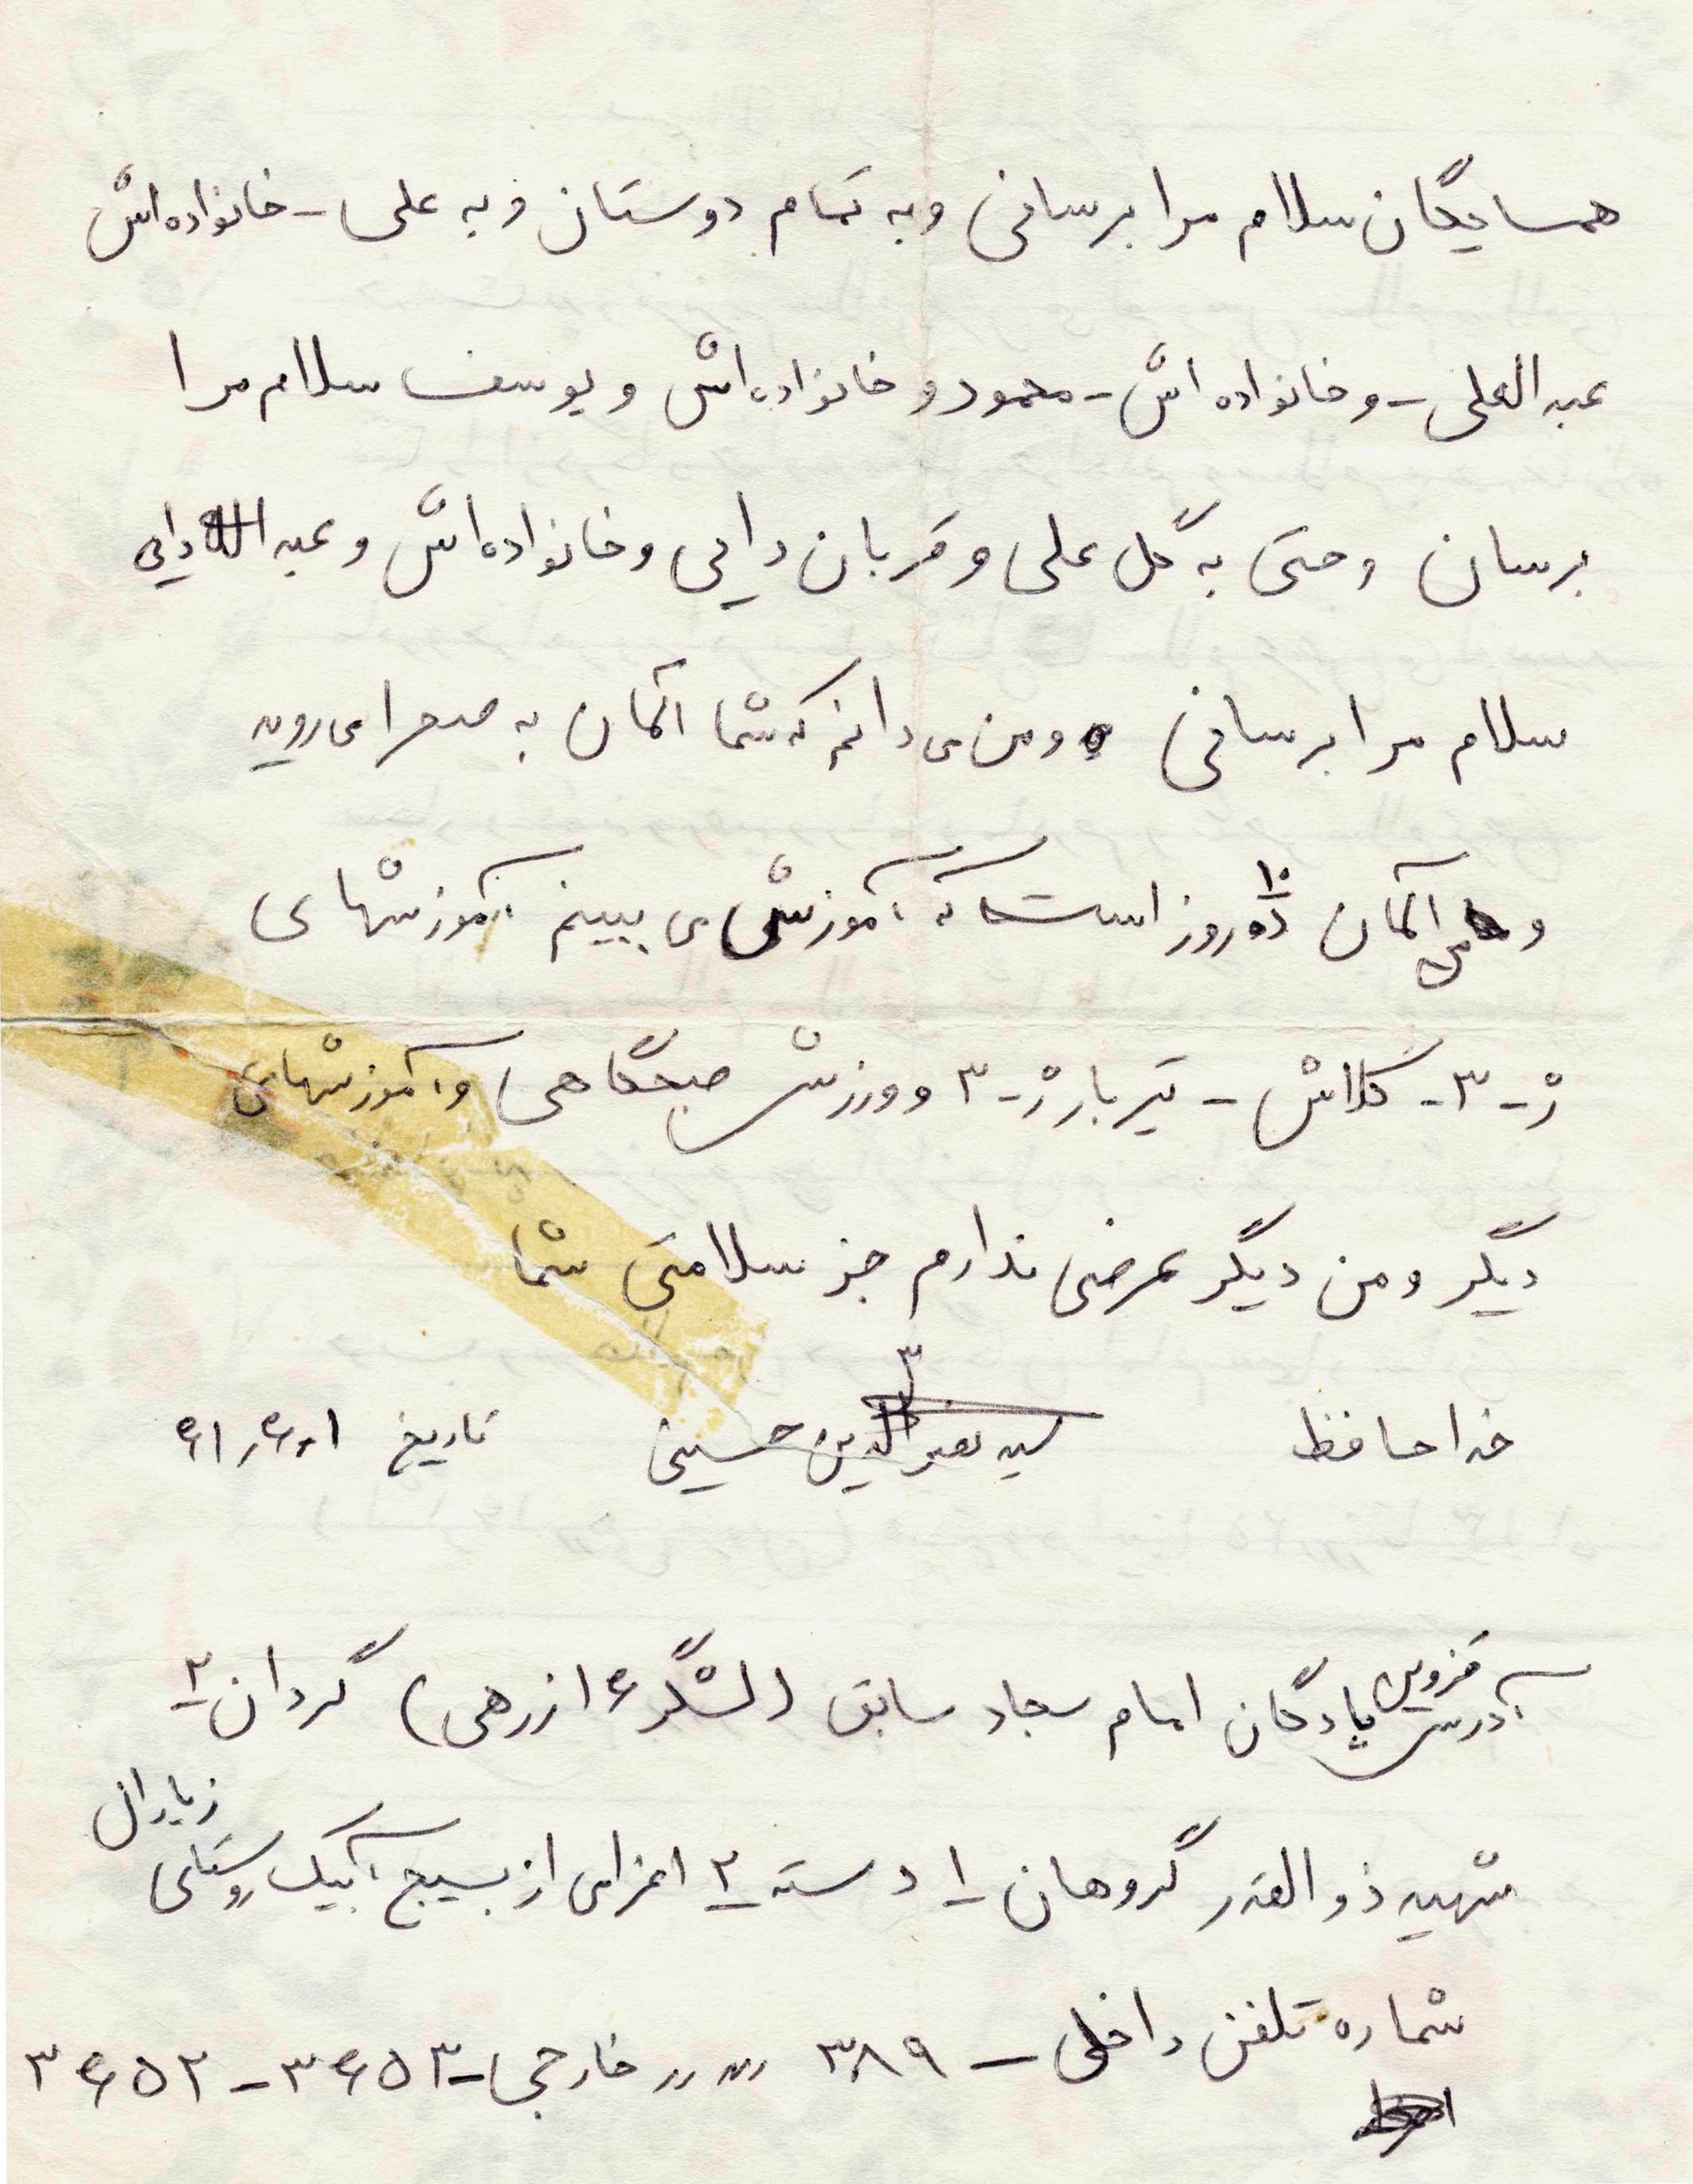 همسایگان سلام مرا برسانی و به تمام دوستان و به علی - خانواده اش
عبدالعلی - و خانواده اش - محمود و خانواده اش و یوسف سلام مرا
برسان و حتی به گل علی و قربان دایی و خانواده اش و عبدالله دایی
سلام مرا برسانی و من می دانم که شما الان به صحرا می روید
و من الان ۱۰ روز است که آموزش می بینم آموزشهای
ژ-۳- کلاش - تیربار ژ-۳ و ورزش صبحگاهی و آموزشهای
دیگر و من دیگر عرضی ندارم جز سلامتی شما
خداحافظ سید نصرالدین حسینی تاریخ ۶۱٫۶٫۱
آدرس قزوین پادگان امام سجاد سابق (لشگر ۱۶ زرهی) گردان ۲
شهید ذوالقدر گروهان ۱ دسته ۲ اعزامی از بسیج آبیک روستای زیاران
شماره تلفن داخلی - ۳۸۹ رر رر خارجی - ۳۶۵۳ - ۳۶۵۲